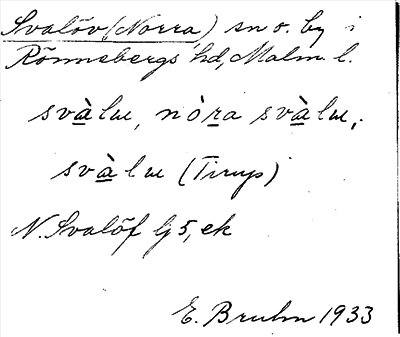 Svalöv (Norra) sn o. by i
Rönnebergs hd, Malm. l.
svàlɯ, nòra svàlɯ,
svàlɯ (Tirup)
N. Svalöf Gj 5, ek
E. Bruhn 1933